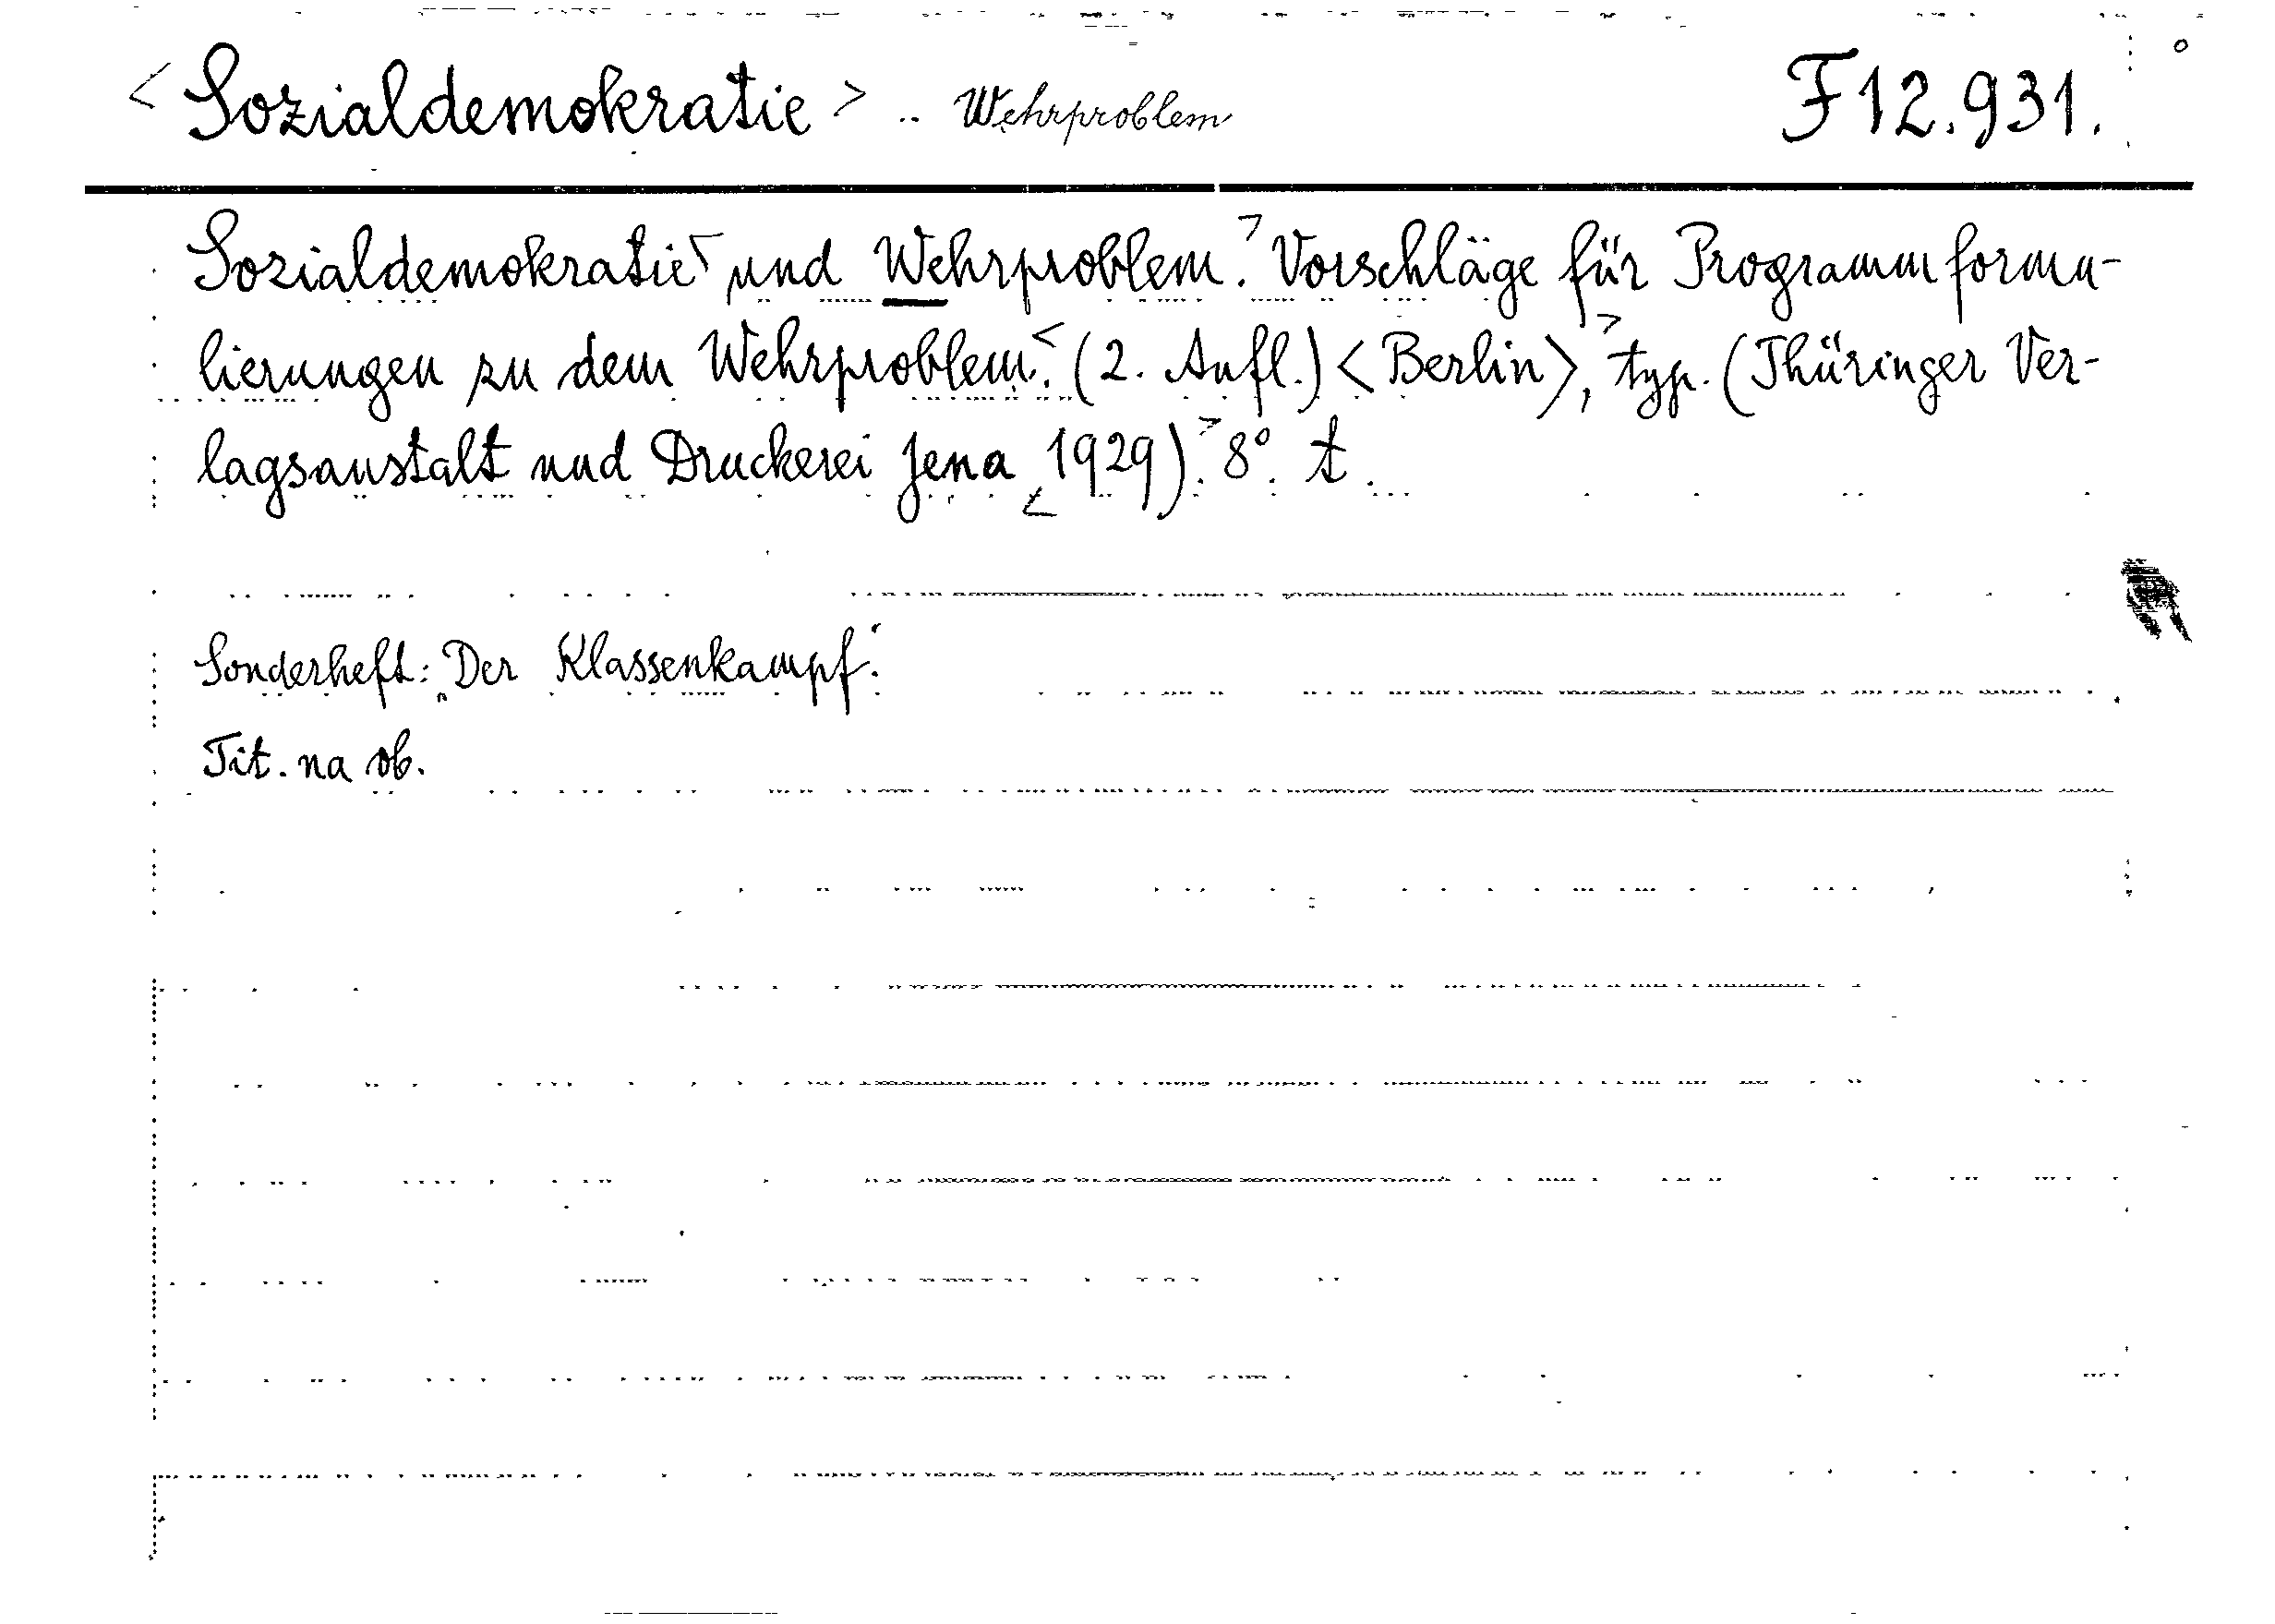 <Sozialdemokratie> .. Wehrproblem F 12.931.
Sozialdemokratie< und Wehrproblem.> Vorschläge für Programmformu-
lierungen zu dem Wehrproblem.< (2. Aufl.) <Berlin>,> typ. (Thüringer Ver-
lagsanstalt und Druckerei Jena < 1929).> 8°. t.
Sonderheft: „Der Klassenkampf.“
Tit. na ob.